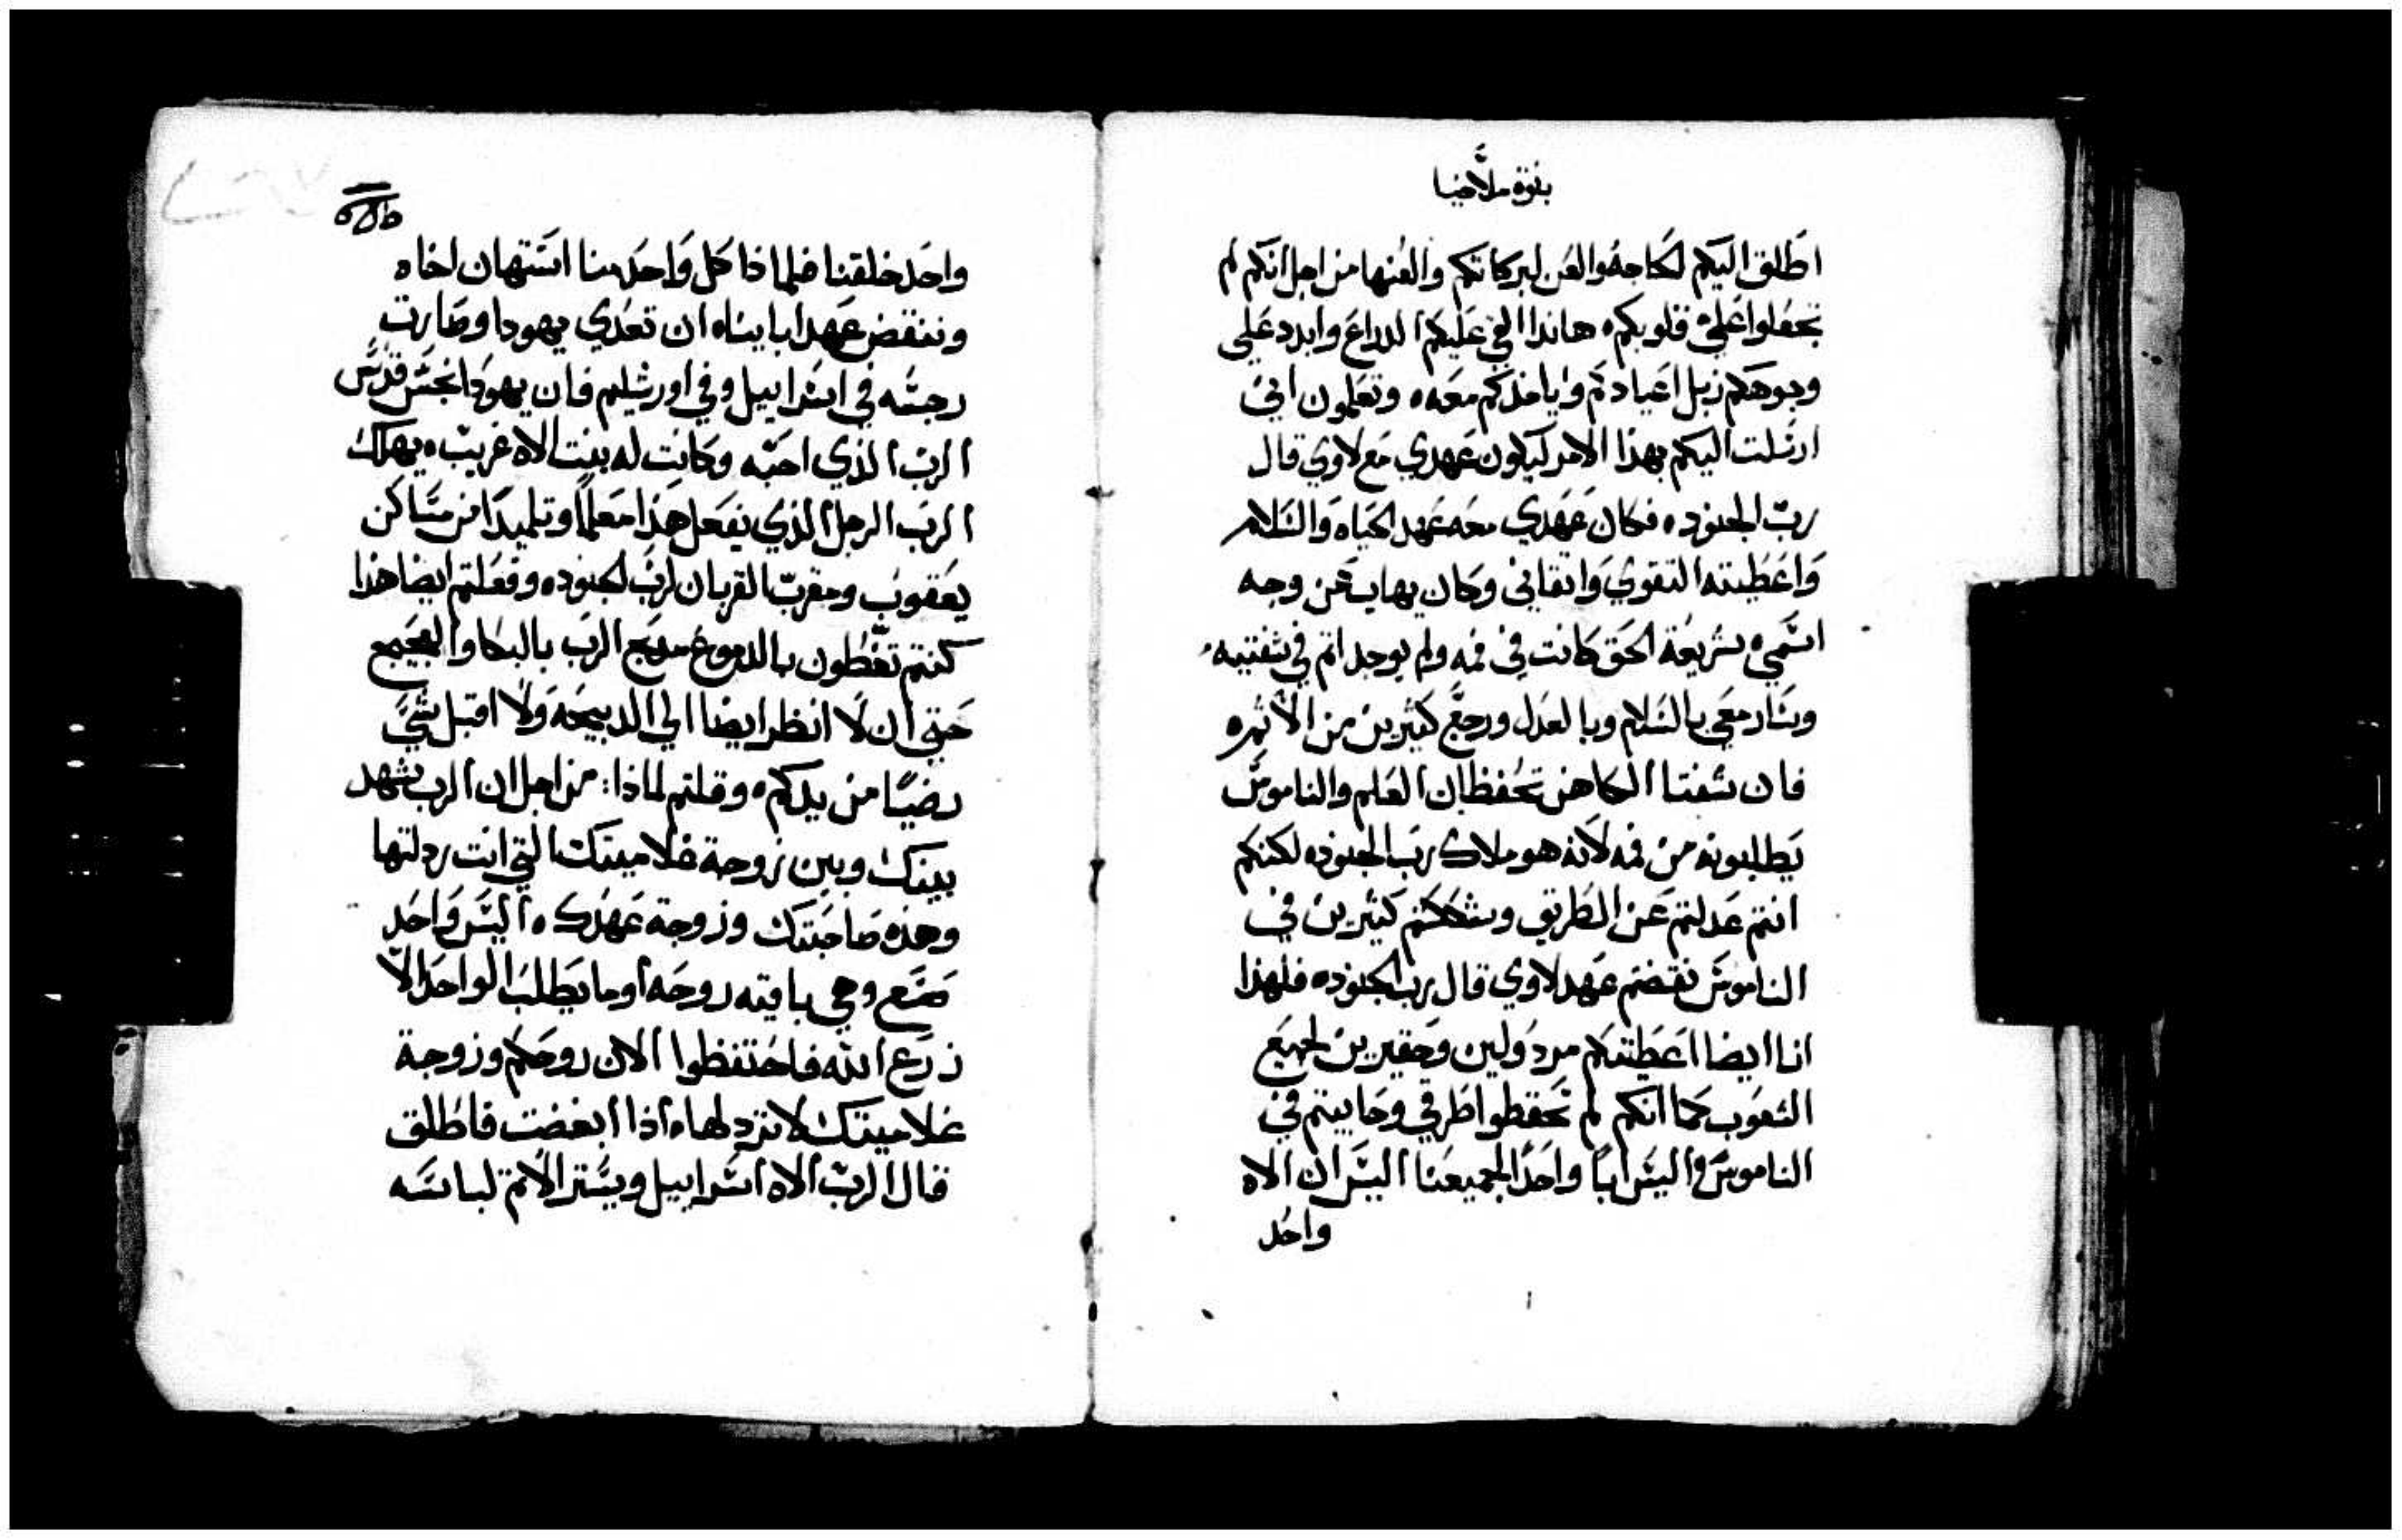 بنوة ملاخيا
اطلق اليكم الحاجه والعن لبركاتكم والعنها من اجل انكم لم
تجعلوا علي قلوبكم ه هانذا القي عليكم الدراع وابدد علي
وجوهكم زبل اعيادكم وياخذكم معه ه وتعلمون اني
ارسلت اليكم بهذا الامر ليكون عهدي مع لاوي قال
ربّ الجنود ه فكان عهدي معه عهد الحياه والسلام
واعطيته التقوي واتقاني وكان يهاب عن وجه
اسمي ه شريعة الحق كانت في فمه ولم يوجد اتم في شفتيه
وسار معي بالسلام وبالعدل ورجع كثيرين من الاثمه
فان شفتا الكاهن تحفظان العلم والناموس
يطلبونه من فمه لانه هو ملاك رب الجنود ه لكنكم
انتم عدلتم عن الطريق وشككتم كثيرين في
الناموس نقضتم عهد لاوي قال رب الجنود ه فلهذا
انا ايضا اعطيتكم مردولين وحقيرين لجميع
الشعوب كما انكم لم تحفظوا طرقي وحابيتم في
الناموس واليس اباً واحداً لجميعنا اليس ان الاه
واحد
واحد خلقنا فلماذا كل واحد منا استهان اخاه
وننقض عهد ابايناه ان تعدي يهودا وصارت
رجسه في اسراييل وفي اورشليم فان يهودا نجس قدس
الرب الذي احبه وكانت له بنت الاه غريب ه يهلك
الرب الرجل الذي يفعل هذا معلماً وتلميداً من مساكن
يعقوب ومقرب القربان لرب الجنود ه وفعلتم ايضا هذا
كنتم تغطون بالدموع مدبح الرب بالبكا والعجيج مع
حتي ان لا انظر ايضا الي الدبيحه ولا اقبل شي
رضيًا من يدكم ه وقلتم لماذا: من اجل ان الرب شهد
بينك وبين زوجة غلاميتك التي انت ردلتها
وهذه صاحبتك وزوجة عهدك ه اليس واحد
صنع وهي باقيته روحه او ما يطلب الواحد الّا
زرع الله فاحتفظوا الان روحكم وزوجة
غلاميتك لا تردلها ه اذا ابغضت فاطلق
قال الرب الاه اسراييل ويستر الاتم لباسه